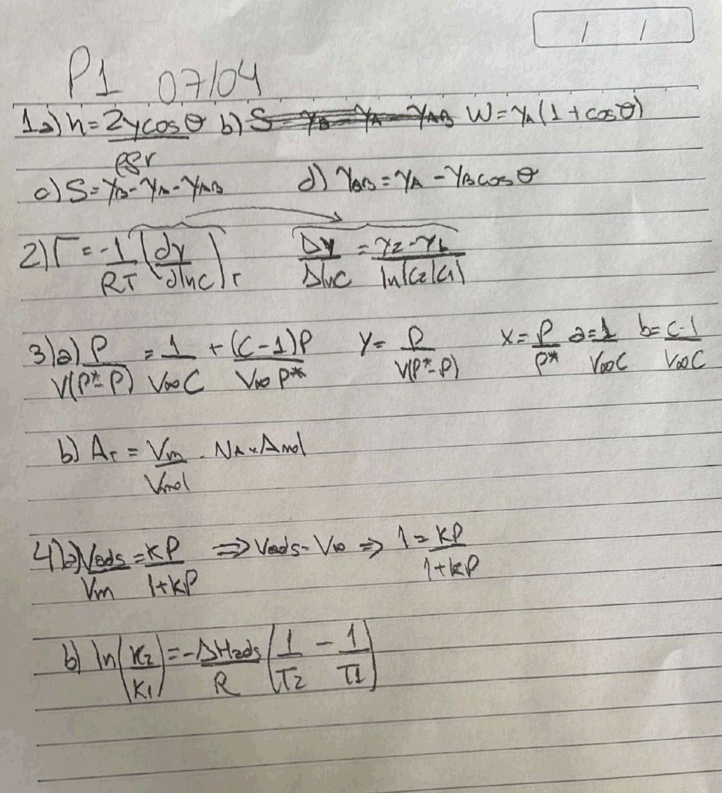 / /
P1 07/04
1a) h = 2γcosθ / ρgr b) S γB - γA - γAB W = γA(1 + cosθ)
c) S = γB - γA - γAB d) γAB = γA - γBcosθ
2) Γ = -1/RT (dγ/dlnC)T Δγ/ΔlnC = γ2 - γ1 / ln(C2/C1)
3) a) P/V(P* - P) = 1/V∞C + (C - 1)P/V∞P* Y = P/V(P* - P) X = P/P* a = 1/V∞C b = C - 1/V∞C
b) AT = Vm/Vmol . NA × Amol
4) a) Vads/Vm = KP/1 + KP ⇒ Vads = V∞ ⇒ 1 = KP/1 + KP
b) ln(K2/K1) = -ΔHads/R (1/T2 - 1/T1)